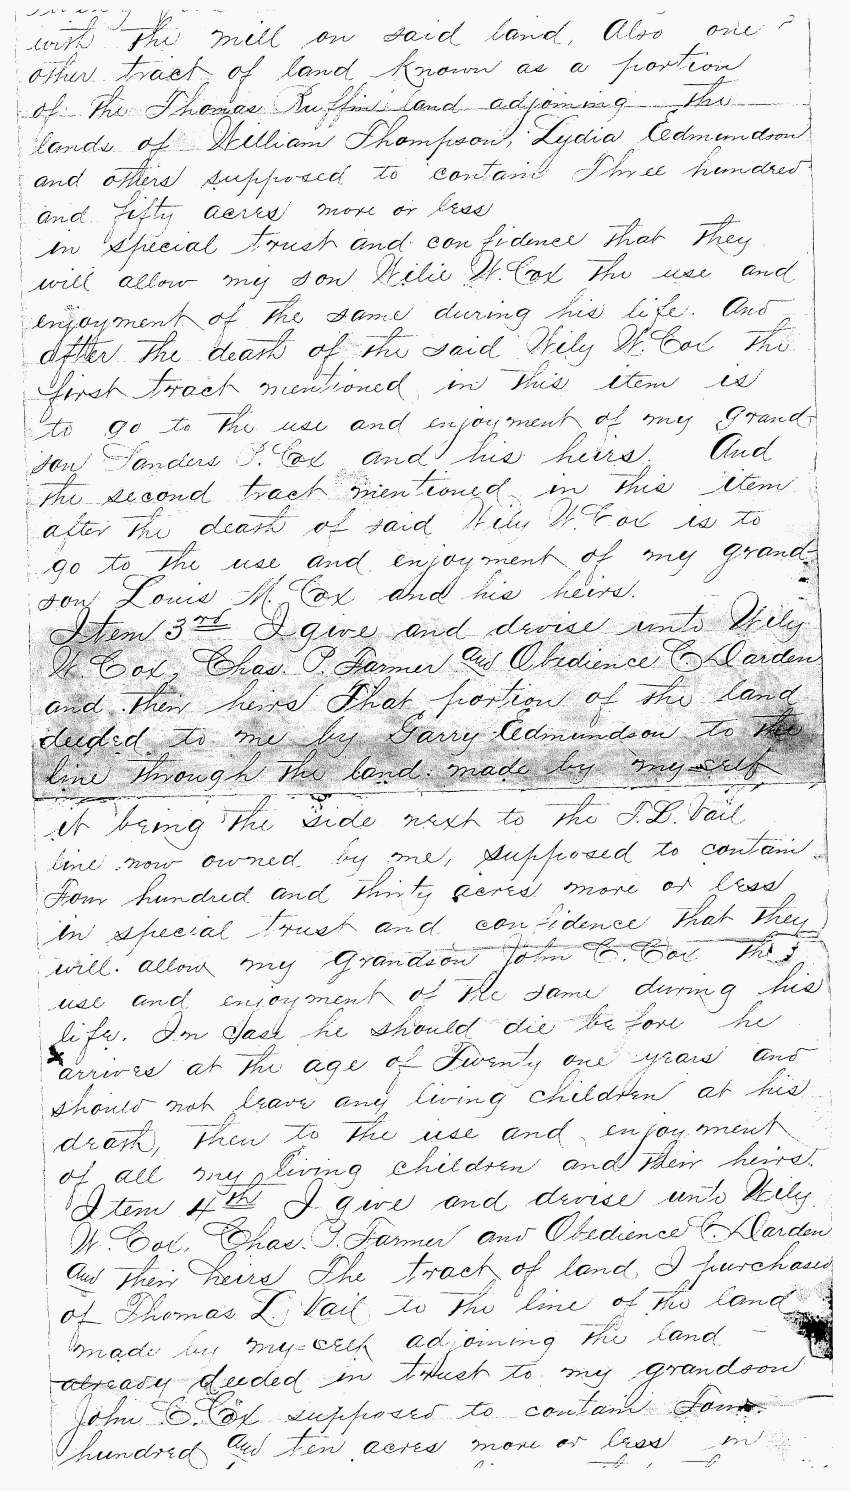 with the mill on said land, Also one
other tract of land known as a portion
of the Thomas Ruffin land adjoining the
lands of William Thompson, Lydia Edmundson
and others supposed to contain Three hundred
and fifty acres more or less
in special trust and confidence that they
will allow my son Wilie W. Cox the use and
enjoyment of the same during his life. And
after the death of the said Wily W. Cox the
first tract mentioned in this item is
to go to the use and enjoyment of my grand
son Sanders P. Cox and his heirs. And
the second tract mentioned in this item
after the death of said Wily W. Cox is to
go to the use and enjoyment of my grand-
son Louis M. Cox and his heirs.
Item 3rd I give and devise unto Wily
W. Cox, Chas. P. Farmer and Obedience C. Darden
and their heirs That portion of the land
deeded to me by Garry Edmundson to the
line through the land made by my-self
it being the side next to the T. L. Vail
line now owned by me, supposed to contain
Four hundred and thirty acres more or less
in special trust and confidence that they
will allow my grandson John C. Cox the
use and enjoyment of the same during his
life. In case he should die before he
arrives at the age of Twenty one years and
should not leave any living children at his
death, then to the use and enjoyment
of all my living children and their heirs.
Item 4th I give and devise unto Wily
W. Cox, Chas. P. Farmer and Obedience C. Darden
and their heirs The tract of land, I purchased
of Thomas L. Vail to the line of the land
made by my-self adjoining the land -
already deeded in trust to my grandson
John C. Cox supposed to contain Four
hundred and ten acres more or less in